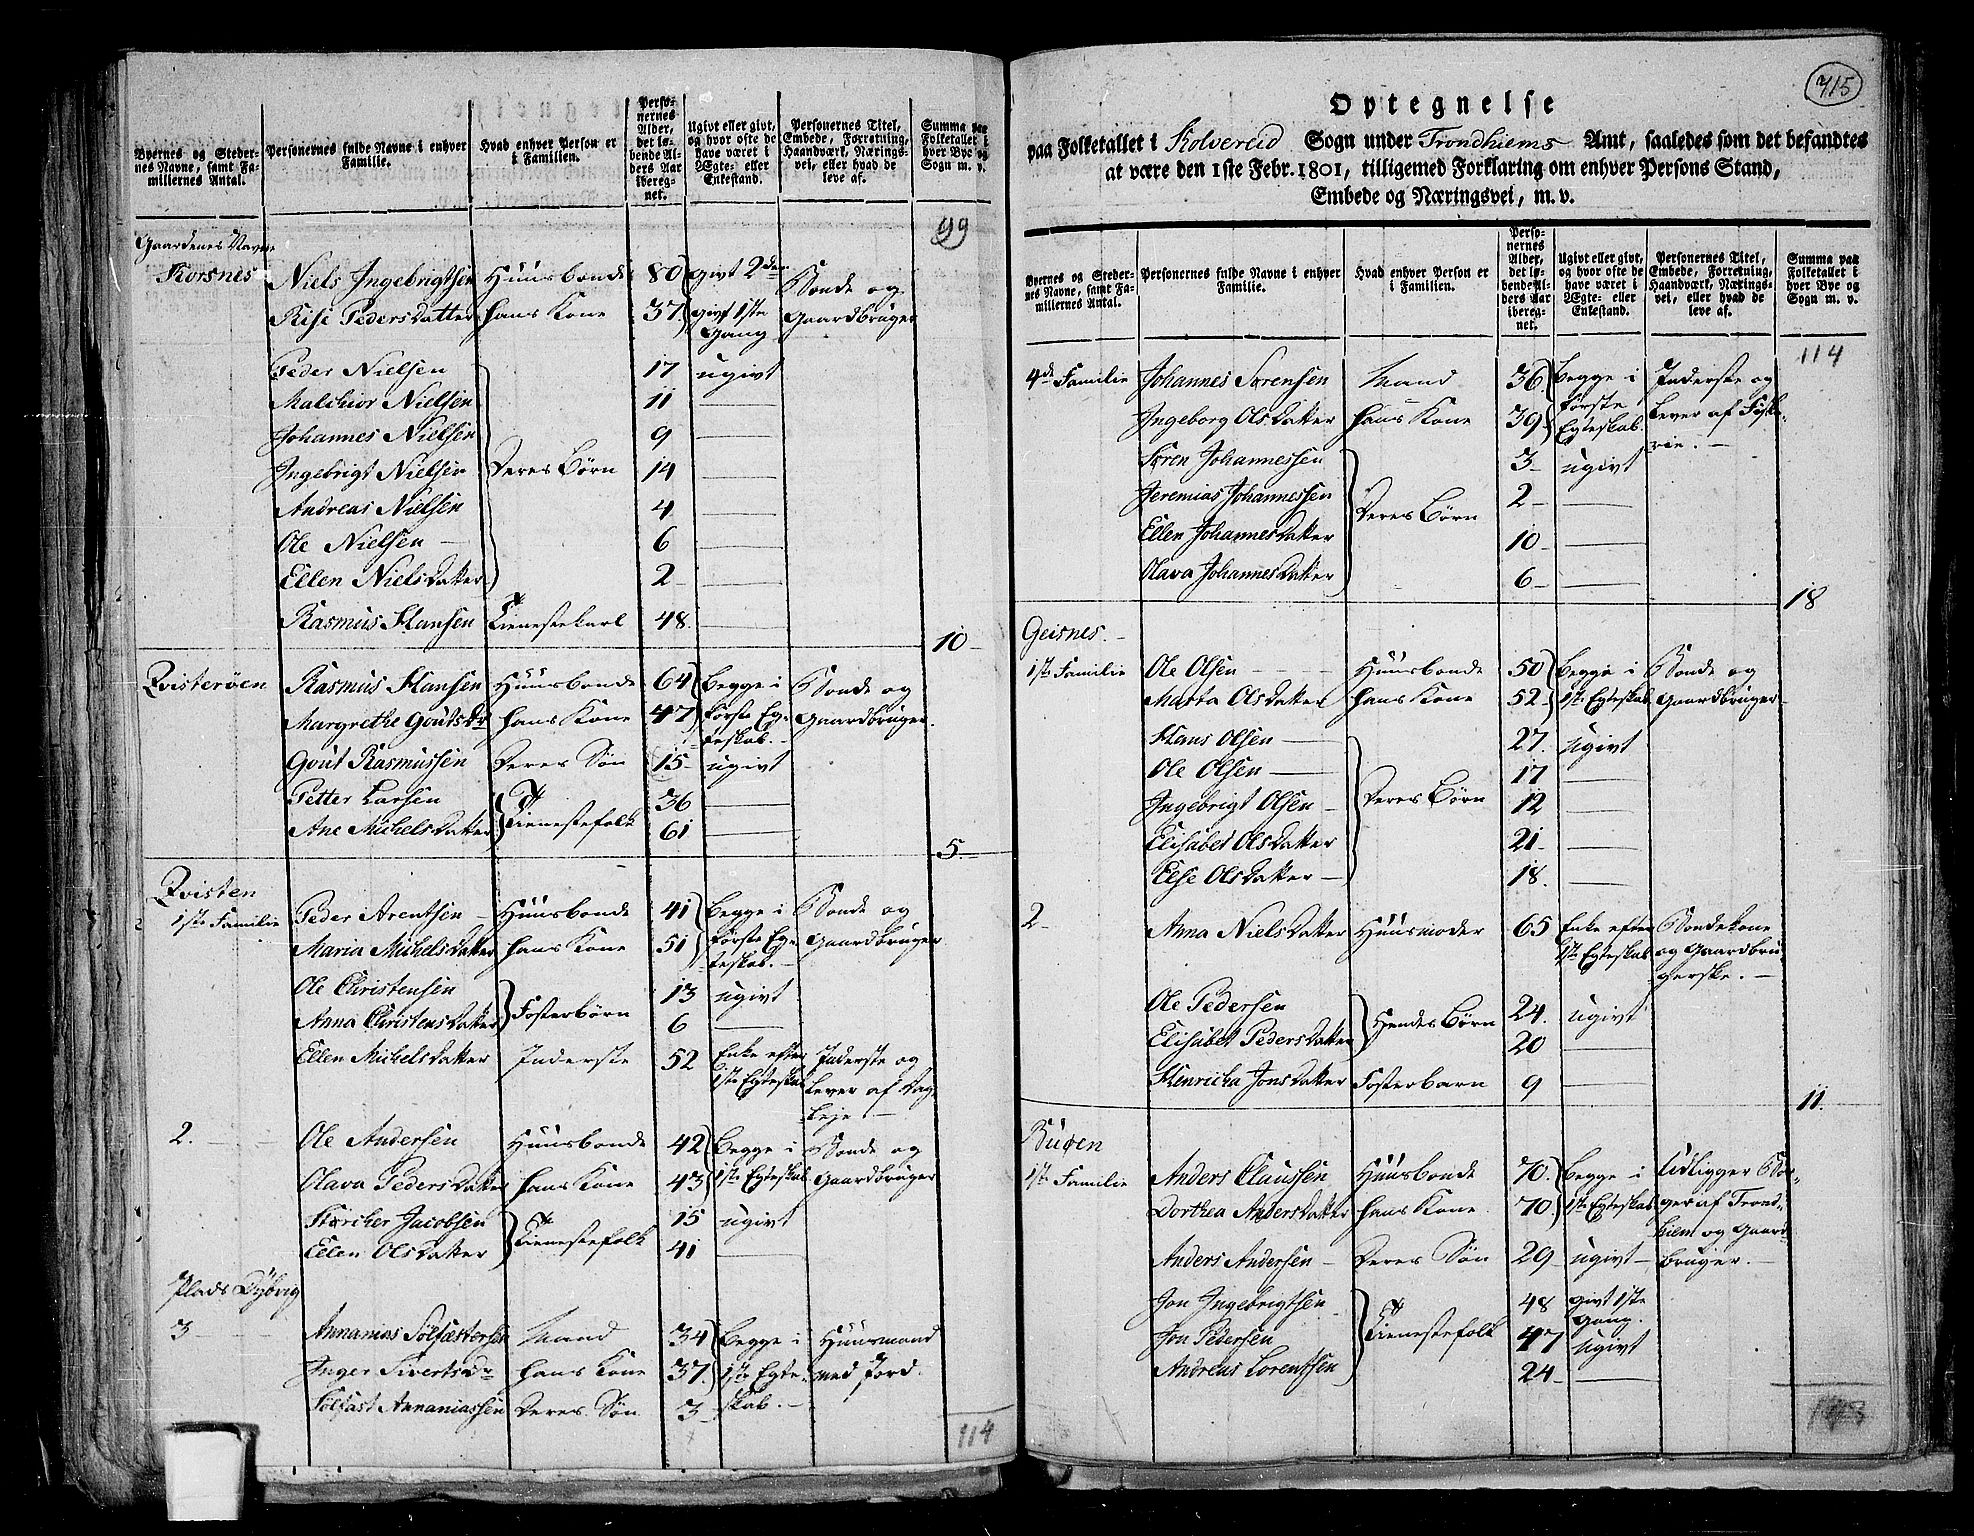 Byernes og Steder-
nes Navne, samt Fa-
millernes Antal.
Personernes fulde Navne i enhver
Familie.
Hvad enhver Person er
i Familien.
Perso-
nernes
Alder,
det lø-
bende Al-
ders Aar
ibereg-
net.
Ugivt eller givt,
og hvor ofte de
have været i
Ægte- eller
Enkestand.
Personernes Titel,
Embede, Forretning,
Haandværk, Nærings-
vei, eller hvad de
leve af.
Summa paa
Folketallet i
hver Bye og
Sogn m. v.
99
Gaardenes Navne
Korsnes Niels Ingebrigtsen Huusbonde 80 givt 2den Bonde og
Risi Pedersdatter hans Kone 37 givt 1ste Gaardbruger
Gang
Peder Nielsen 17 ugivt
Malchior Nielsen 11 —
Johannes Nielsen 9 —
Ingebrigt Nielsen Deres Børn 14 —
Andreas Nielsen 4 —
Ole Nielsen 6 —
Ellen Nielsdatter 2 —
Rasmus Hansen Tienestekarl 48 —
10
Qvisterøen Rasmus Hansen Huusbonde 64 Begge i Bonde og
Margrethe Goutsdr hans Kone 47 første Eg- Gaardbruger
teskab.
Gout Rasmussen Deres Søn 15 ugivt
Petter Larsen 36 —
Ane Michelsdatter Tienestefolk 61 —
5
Qvisten
1ste Familie Peder Arentsen Huusbonde 41 Begge i Bonde og
Maria Michelsdatter hans Kone 51 første Eg- Gaardbruger
teskab.
Ole Christensen 13 ugivt
Anna Christensdatter Fosterbørn 6 —
Ellen Michelsdatter Inderste 52 Enke efter Inderste og
1ste Egteskab lever af Dag-
leje
2. Ole Andersen Huusbonde 42 Begge i Bonde og
Olava Pedersdatter hans Kone 43 1ste Egteskab Gaardbruger
Størcher Jacobsen 15 ugivt
Ellen Olsdatter Tienestefolk 41 —
Plads Dybvig
3 Annanias Solfæstersen Mand 34 Begge i Huusmand
Inger Sivertsdr hans Kone 37 1ste Egte- med Jord.
Solfast Annaniassen Deres Søn 3 skab.
114
715
Optegnelse
paa Folketallet i Kolvereid Sogn under Trondhiems Amt, saaledes som det befandtes
at være den 1ste Febr. 1801, tilligemed Forklaring om enhver Persons Stand,
Embede og Næringsvei, m. v.
Byernes og Steder-
nes Navne, samt Fa-
millernes Antal.
Personernes fulde Navne i enhver
Familie.
Hvad enhver Person er
i Familien.
Perso-
nernes
Alder,
det lø-
bende Al-
ders Aar
ibereg-
net.
Ugivt eller givt,
og hvor ofte de
have været i
Ægte- eller
Enkestand.
Personernes Titel,
Embede, Forretning,
Haandværk, Nærings-
vei, eller hvad de
leve af.
Summa paa
Folketallet i
hver Bye og
Sogn m. v.
114
4de Familie Johannes Sørensen Mand 36 Begge i Inderste og
Ingeborg Olsdatter hans Kone 39 første lever af Fiske-
Egteskab. rie.
Søren Johannessen 3 ugivt
Jeremias Johannessen 2 —
Deres Børn
Ellen Johannesdatter 10 —
Olava Johannesdatter 6 —
18
Geisnes.
1ste Familie Ole Olsen Huusbonde 50 Begge i Bonde og
Marta Olsdatter hans Kone 52 1ste Egteskab Gaardbruger
Hans Olsen 27 ugivt
Ole Olsen 17 —
Ingebrigt Olsen Deres Børn 12 —
Elisabet Olsdatter 21 —
Else Olsdatter 18 —
2 Anna Nielsdatter Huusmoder 65 Enke efter Bondekone
1ste Egteskab og Gaardbru-
gerske.
Ole Pedersen 24 ugivt
Elisabet Pedersdatter Hendes Børn 20 —
Henricha Jonsdatter Fosterbarn 9 —
11
Buøen
1ste Familie Anders Claussen Huusbonde 70 Begge i Udligger Bor-
Dorthea Andersdatter hans Kone 70 1ste Egteskab ger af Trond-
hiem og Gaard-
Anders Andersen Deres Søn 29 ugivt bruger.
Jon Ingebrigtsen 48 givt 1ste
Gang.
Jon Pedersen Tienestefolk 47 ugivt
Andreas Lorentsen 24 —
143